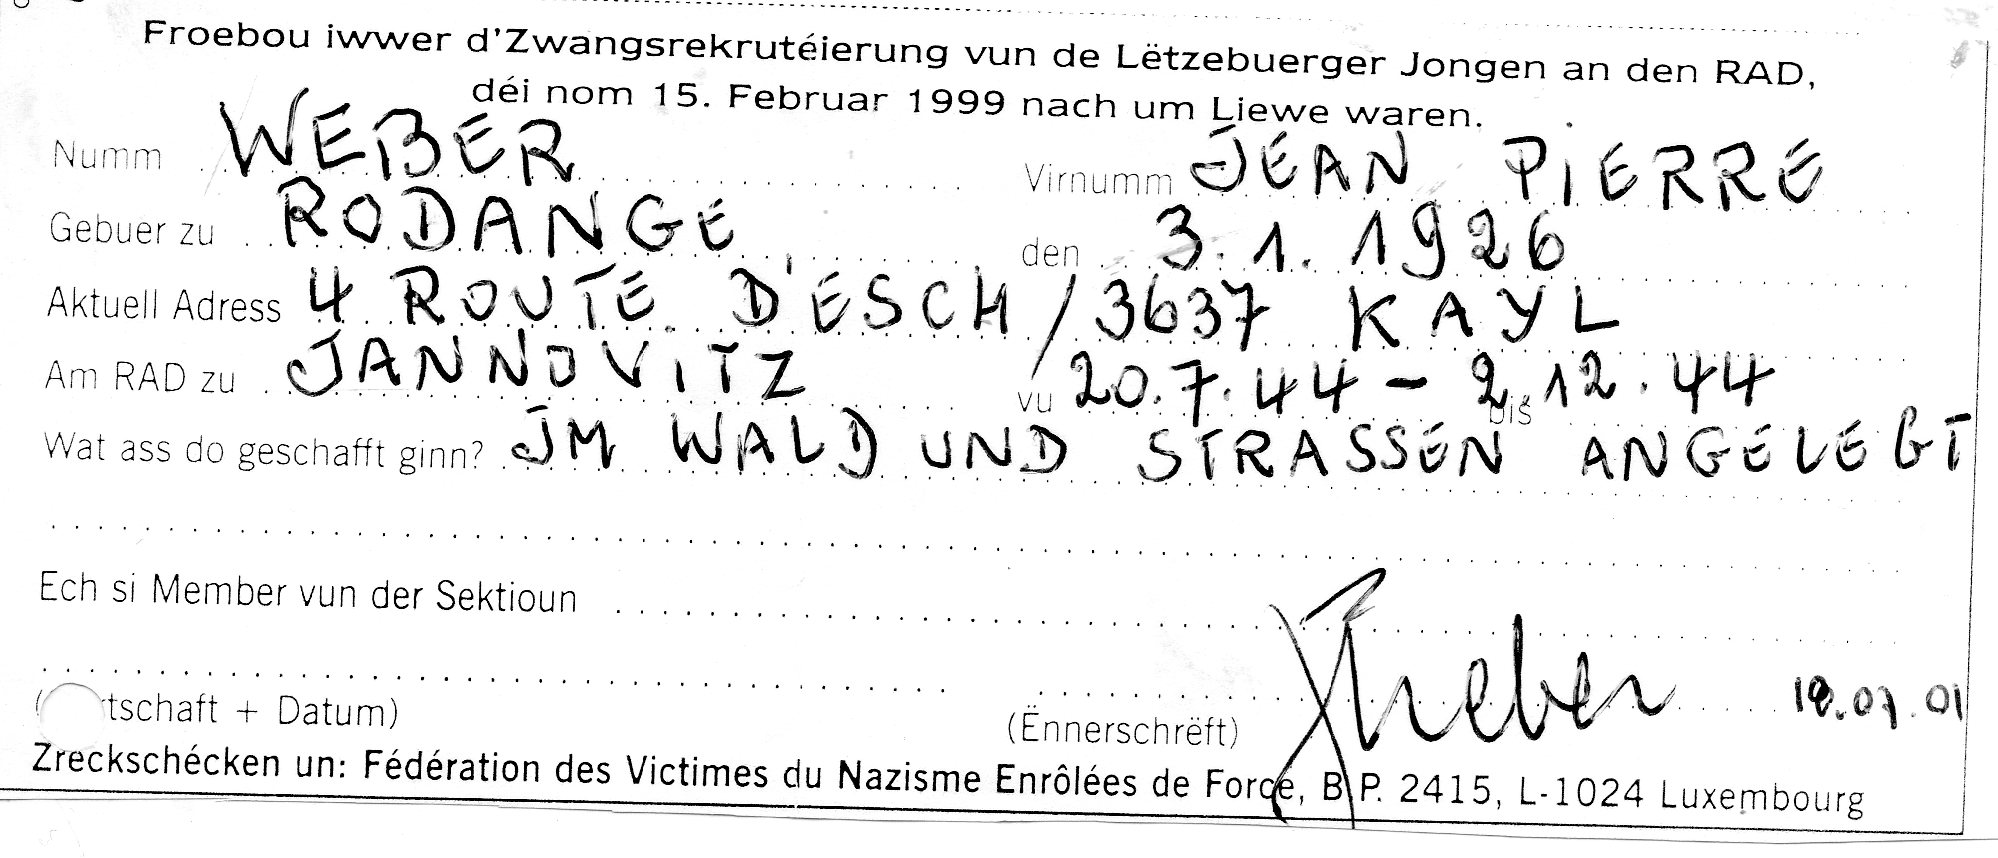 Froebou iwwer d'Zwangsrekrutéierung vun de Lëtzebuerger Jongen an den RAD,
déi nom 15. Februar 1999 nach um Liewe waren.
Numm WEBER Virnumm JEAN PIERRE
Gebuer zu RODANGE den 3.1.1926
Aktuell Adress 4 ROUTE D'ESCH / 3637 KAYL
Am RAD zu JANNOVITZ vu 20.7.44 - bis 2.12.44
Wat ass do geschafft ginn? JM WALD UND STRASSEN ANGELEGT
Ech si Member vun der Sektioun
Weber .01
tschaft + Datum) (Ënnerschrëft)
Zreckschécken un: Fédération des Victimes du Nazisme Enrôlées de Force, B.P. 2415, L-1024 Luxembourg